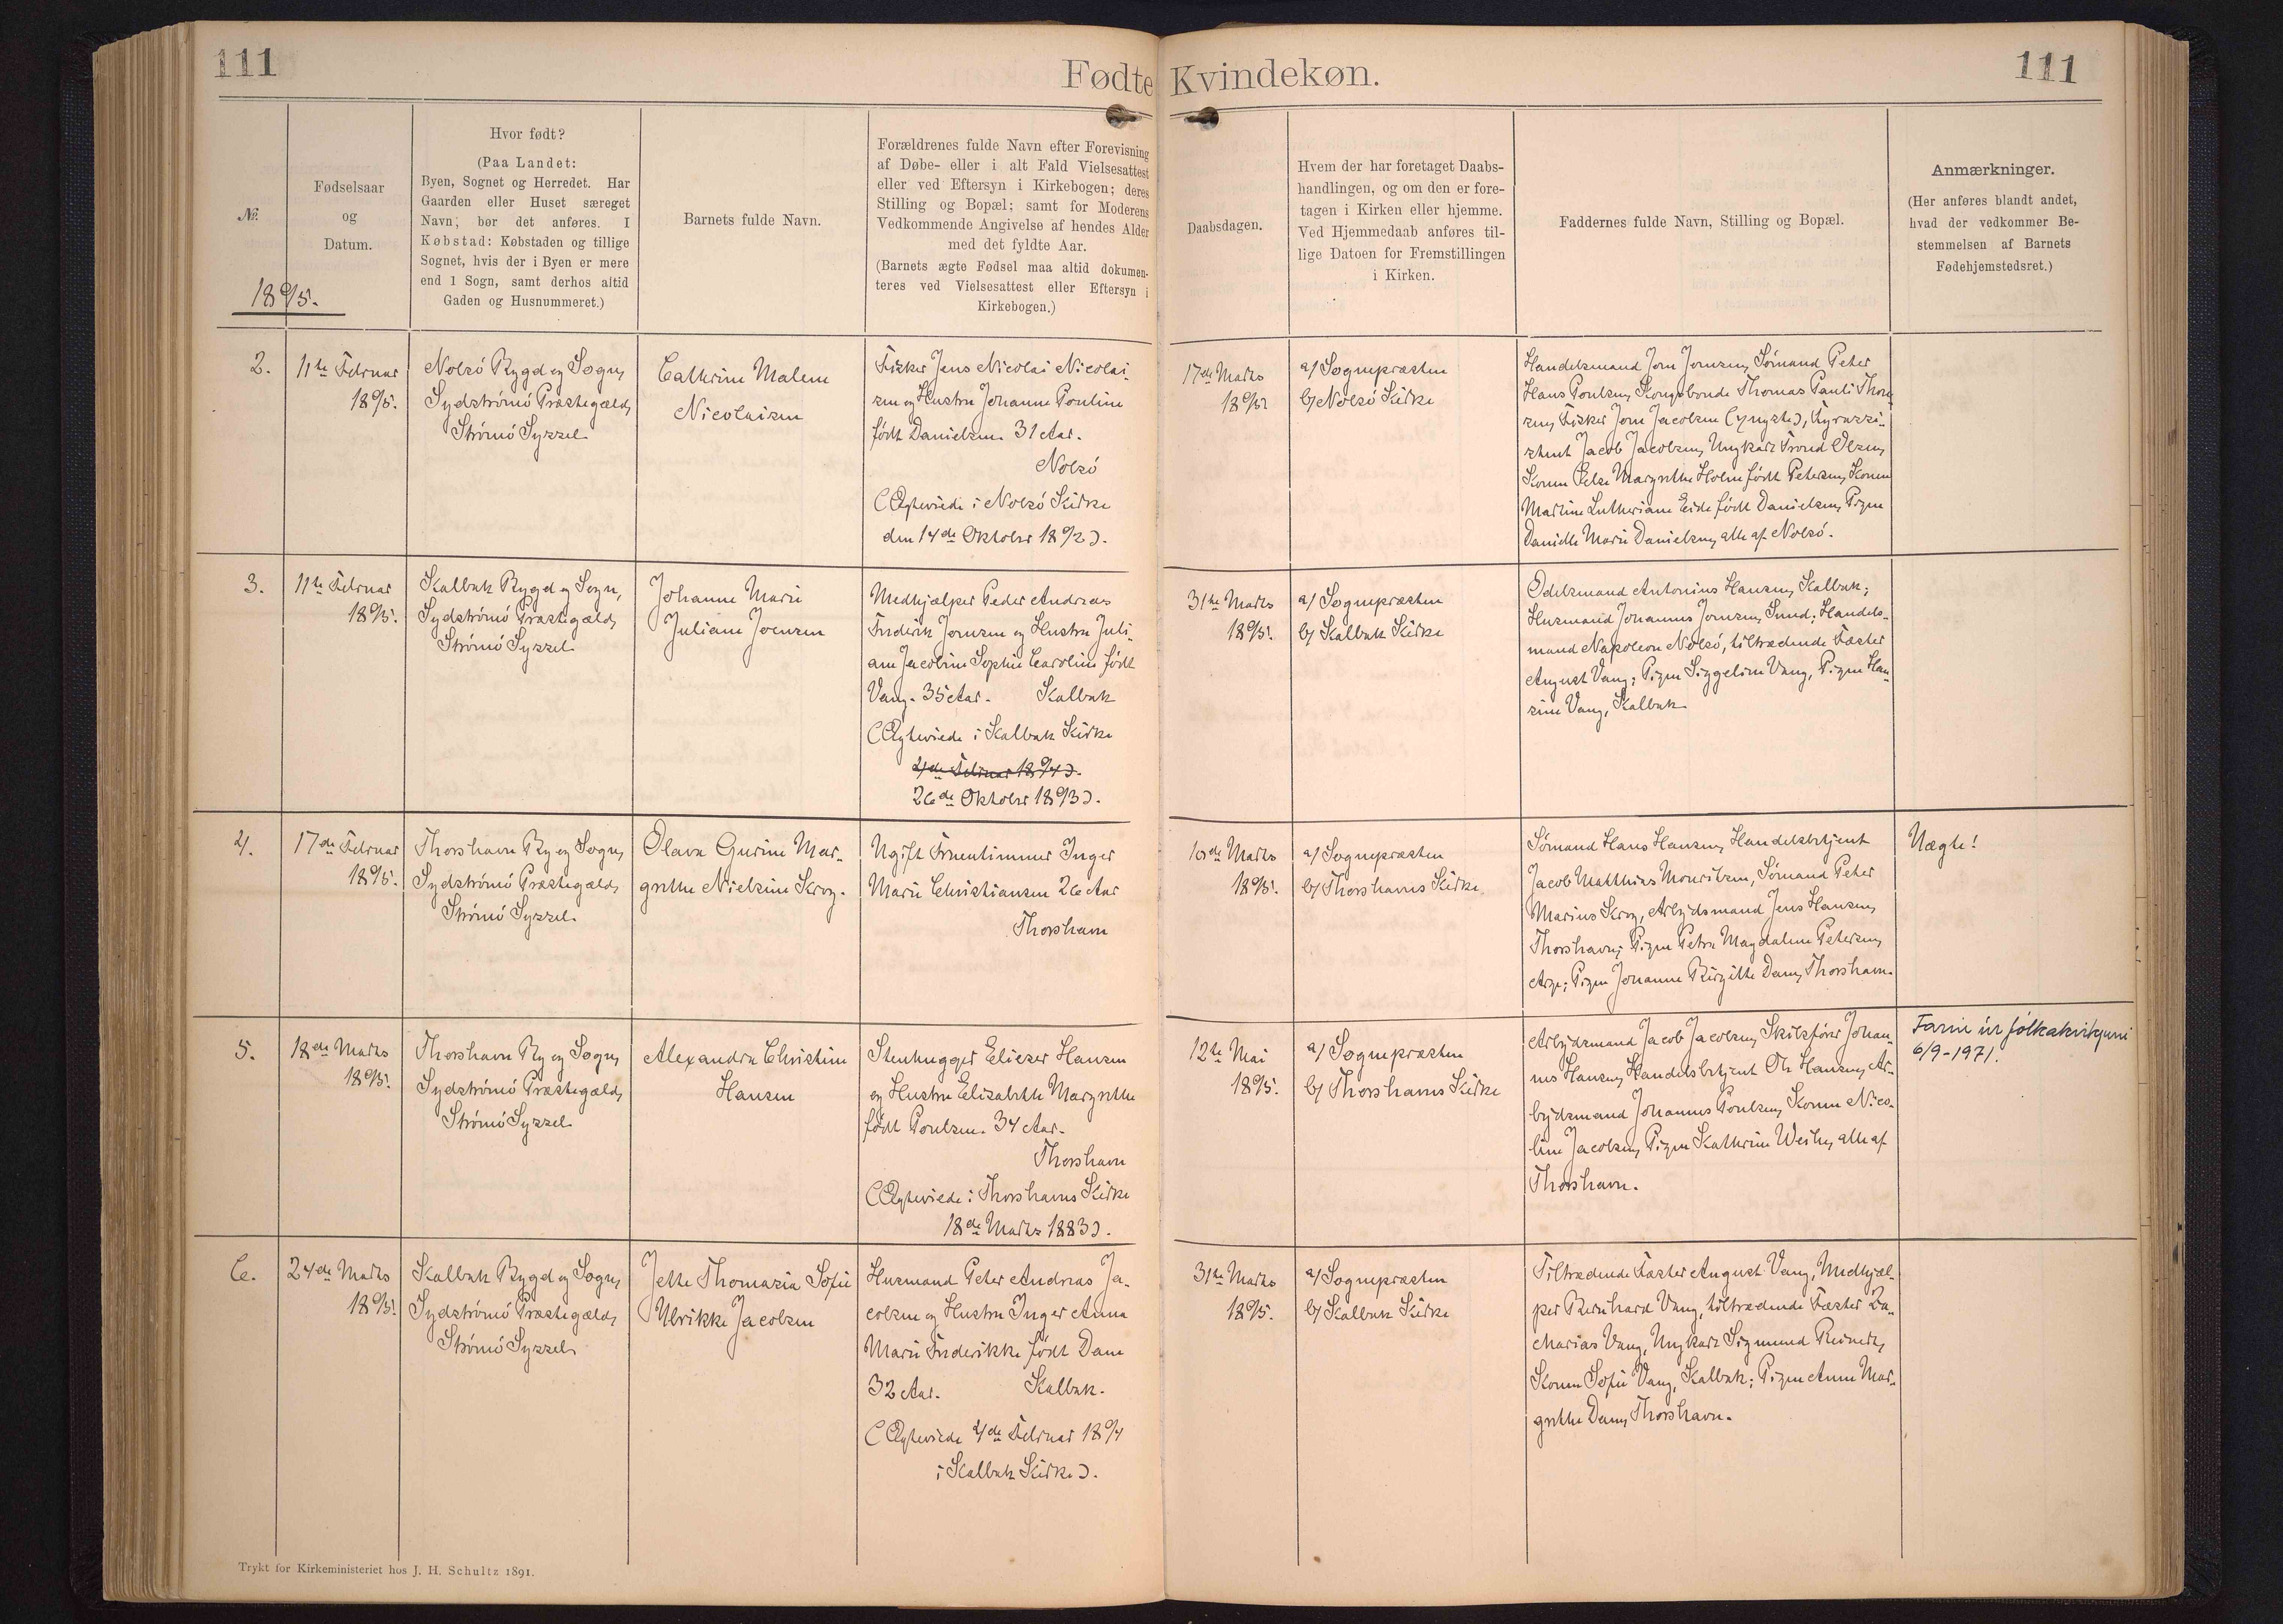 111
Fødte Kvindekøn.
111
№.
1895.
Fødselsaar
og
Datum.
Hvor født?
(Paa Landet:
Byen, Sognet og Herredet. Har
Gaarden eller Huset særeget
Navn, bør det anføres. I
Købstad: Købstaden og tillige
Sognet, hvis der i Byen er mere
end 1 Sogn, samt derhos altid
Gaden og Husnummeret.)
Barnets fulde Navn.
Forældrenes fulde Navn efter Forevisning
af Døbe- eller i alt Fald Vielsesattest
eller ved Eftersyn i Kirkebogen; deres
Stilling og Bopæl; samt for Moderens
Vedkommende Angivelse af hendes Alder
med det fyldte Aar.
(Barnets ægte Fødsel maa altid dokumen-
teres ved Vielsesattest eller Eftersyn i
Kirkebogen.)
Daabsdagen.
Hvem der har foretaget Daabs-
handlingen, og om den er fore-
tagen i Kirken eller hjemme.
Ved Hjemmedaab anføres til-
lige Datoen for Fremstillingen
i Kirken.
Faddernes fulde Navn, Stilling og Bopæl.
Anmærkninger.
(Her anføres blandt andet,
hvad der vedkommer Be-
stemmelsen af Barnets
Fødehjemstedsret.)
2.
11te Februar
1895.
Nolsö Bygd og Sogn,
Sydströmö Præstegæld,
Strömö Syssel
Cathrine Malene
Nicolaisen
Fisker Jens Nicolai Nicolai-
sen og Hustru Johanne Pouline
født Danielsen. 31 Aar.
Nolsö
(Ægteviede i Nolsö Kirke
den 14de Oktober 1892).
17de Marts
1895
a) Sognepræsten
b) Nolsö Kirke
Handelsmand Joen Joensen, Sömand Peter
Hans Poulsen, Kongsbonde Thomas Pauli Thom-
sen, Fisker Joen Jacobsen (yngste), Fyrassi-
stent Jacob Jacobsen, Ungkarl Trond Olsen,
Konen Else Margrethe Holm født Petersen, Konen
Martine Lutheriane Eide født Danielsen, Pigen
Danielle Marie Danielsen, alle af Nolsö.
3.
11te Februar
1895.
Kalbak Bygd og Sogn,
Sydströmö Præstegæld,
Strömö Syssel
Johanne Marie
Juliane Joensen
Medhjælper Peder Andreas
Frederik Joensen og Hustru Juli-
ane Jacobine Sophie Caroline født
Vang. 35 Aar. Kalbak
(Ægteviede i Kalbak Kirke
4de Februar 1894).
26de Oktober 1893).
31te Marts
1895.
a) Sognepræsten
b) Kalbak Kirke
Odelsmand Antonius Hansen, Kalbak;
Husmand Johannes Joensen, Sund; Handels-
mand Napoleon Nolsö, tiltrædende Fæster
August Vang; Pigen Siggeline Vang, Pigen Han-
sine Vang, Kalbak
4.
17de Februar
1895.
Thorshavn By og Sogn,
Sydströmö Præstegæld,
Strömö Syssel.
Olava Gurine Mar-
grethe Nielsine Krog.
Ugift Fruentimmer Inger
Marie Christiansen 26 Aar
Thorshavn
10de Marts
1895.
a) Sognepræsten
b) Thorshavns Kirke.
Sömand Hans Hansen, Handelsbetjent
Jacob Matthias Mouritsen, Sömand Peter
Marius Krog, Arbejdsmand Jens Hansen,
Thorshavn; Pigen Petra Magdalene Petersen,
Arge; Pigen Johanne Birgitte Dam, Thorshavn.
Uægte!
5.
18de Marts
1895.
Thorshavn By og Sogn,
Sydströmö Præstegæld,
Strömö Syssel
Alexandra Christine
Hansen
Stenhugger Eliezer Hansen
og Hustru Elisabeth Margrethe
født Poulsen. 34 Aar.
Thorshavn
(Ægteviede i Thorshavns Kirke
18de Marts 1883).
12te Mai
1895.
a) Sognepræsten
b) Thorshavns Kirke
Arbejdsmand Jacob Jacobsen, Skibsförer Johan-
nes Hansen, Handelsbetjent Ole Hansen, Ar-
bejdsmand Johannes Poulsen, Konen Nico-
line Jacobsen, Pigen Kathrine Weihe, alle af
Thorshavn.
Farin úr fólkakirkjuni
6/9-1971.
6.
24de Marts
1895.
Kalbak Bygd og Sogn,
Sydströmö Præstegæld,
Strömö Syssel
Jette Thomasia Sofie
Ulrikke Jacobsen
Husmand Peter Andreas Ja-
cobsen og Hustru Inger Anna
Marie Frederikke født Dam
32 Aar. Kalbak.
(Ægteviede 4de Februar 1894
i Kalbak Kirke).
31te Marts
1895.
a) Sognepræsten
b) Kalbak Kirke
Tiltrædende Fæster August Vang, Medhjæl-
per Bernhard Vang, tiltrædende Fæster Za-
charias Vang, Ungkarl Sigmund Reinert,
Konen Sofie Vang, Kalbak; Pigen Anna Mar-
grethe Dam, Thorshavn.
Trykt for Kirkeministeriet hos J. H. Schultz 1891.